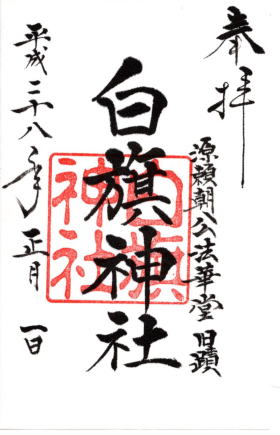 奉拝
源頼朝公法華堂旧蹟
白旗神社
白旗神社
平成二十八年正月一日